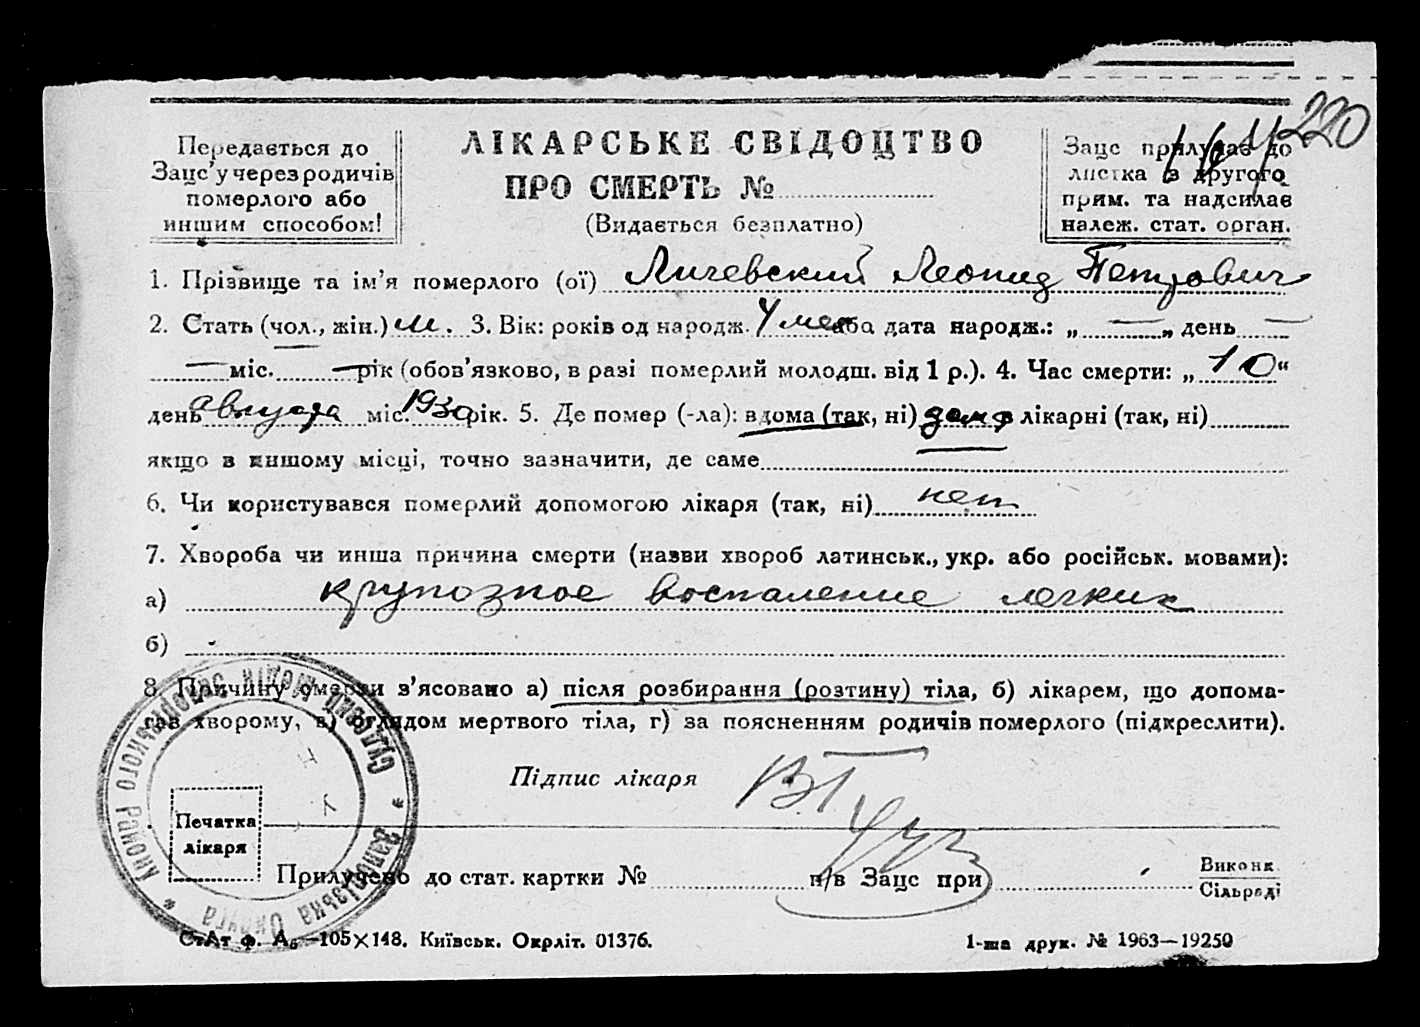 220
Передається до
Загс'у через родичів
померлого або
иншим способом!
ЛІКАРСЬКЕ СВІДОЦТВО
ПРО СМЕРТЬ №
(Видається безплатно)
Загс прилучає до
листка з другого
прим. та надсилає
належ. стат. орган.
1. Прізвище та ім'я померлого (ої) Личевский Леонид Петрович
2. Стать (чол., жін.) м. 3. Вік: років од народж. 4 мес або дата народж.: „ — „ день —
— міс. — рік (обов'язково, в разі померлий молодш. від 1 р.). 4. Час смерти: „ 10 "
день августа міс. 1930 рік. 5. Де помер (-ла): вдома (так, ні) дома в лікарні (так, ні)
якщо в иншому місці, точно зазначити, де саме
6. Чи користувався померлий допомогою лікаря (так, ні) нет
7. Хвороба чи инша причина смерти (назви хвороб латинськ., укр. або російськ. мовами):
а) крупозное воспаление легких
б)
8. Причину смерти з'ясовано а) після розбирання (розтину) тіла, б) лікарем, що допома-
гав хворому, в) оглядом мертвого тіла, г) за поясненням родичів померлого (підкреслити).
Підпис лікаря
Печатка
лікаря
Прилучено до стат. картки № п/в Загс при Виконк.
Сільраді
СтАт ф. А₆ —105×148. Київськ. Окрліт. 01376.
1-ша друк. № 1963—19250
Запорізька Округа